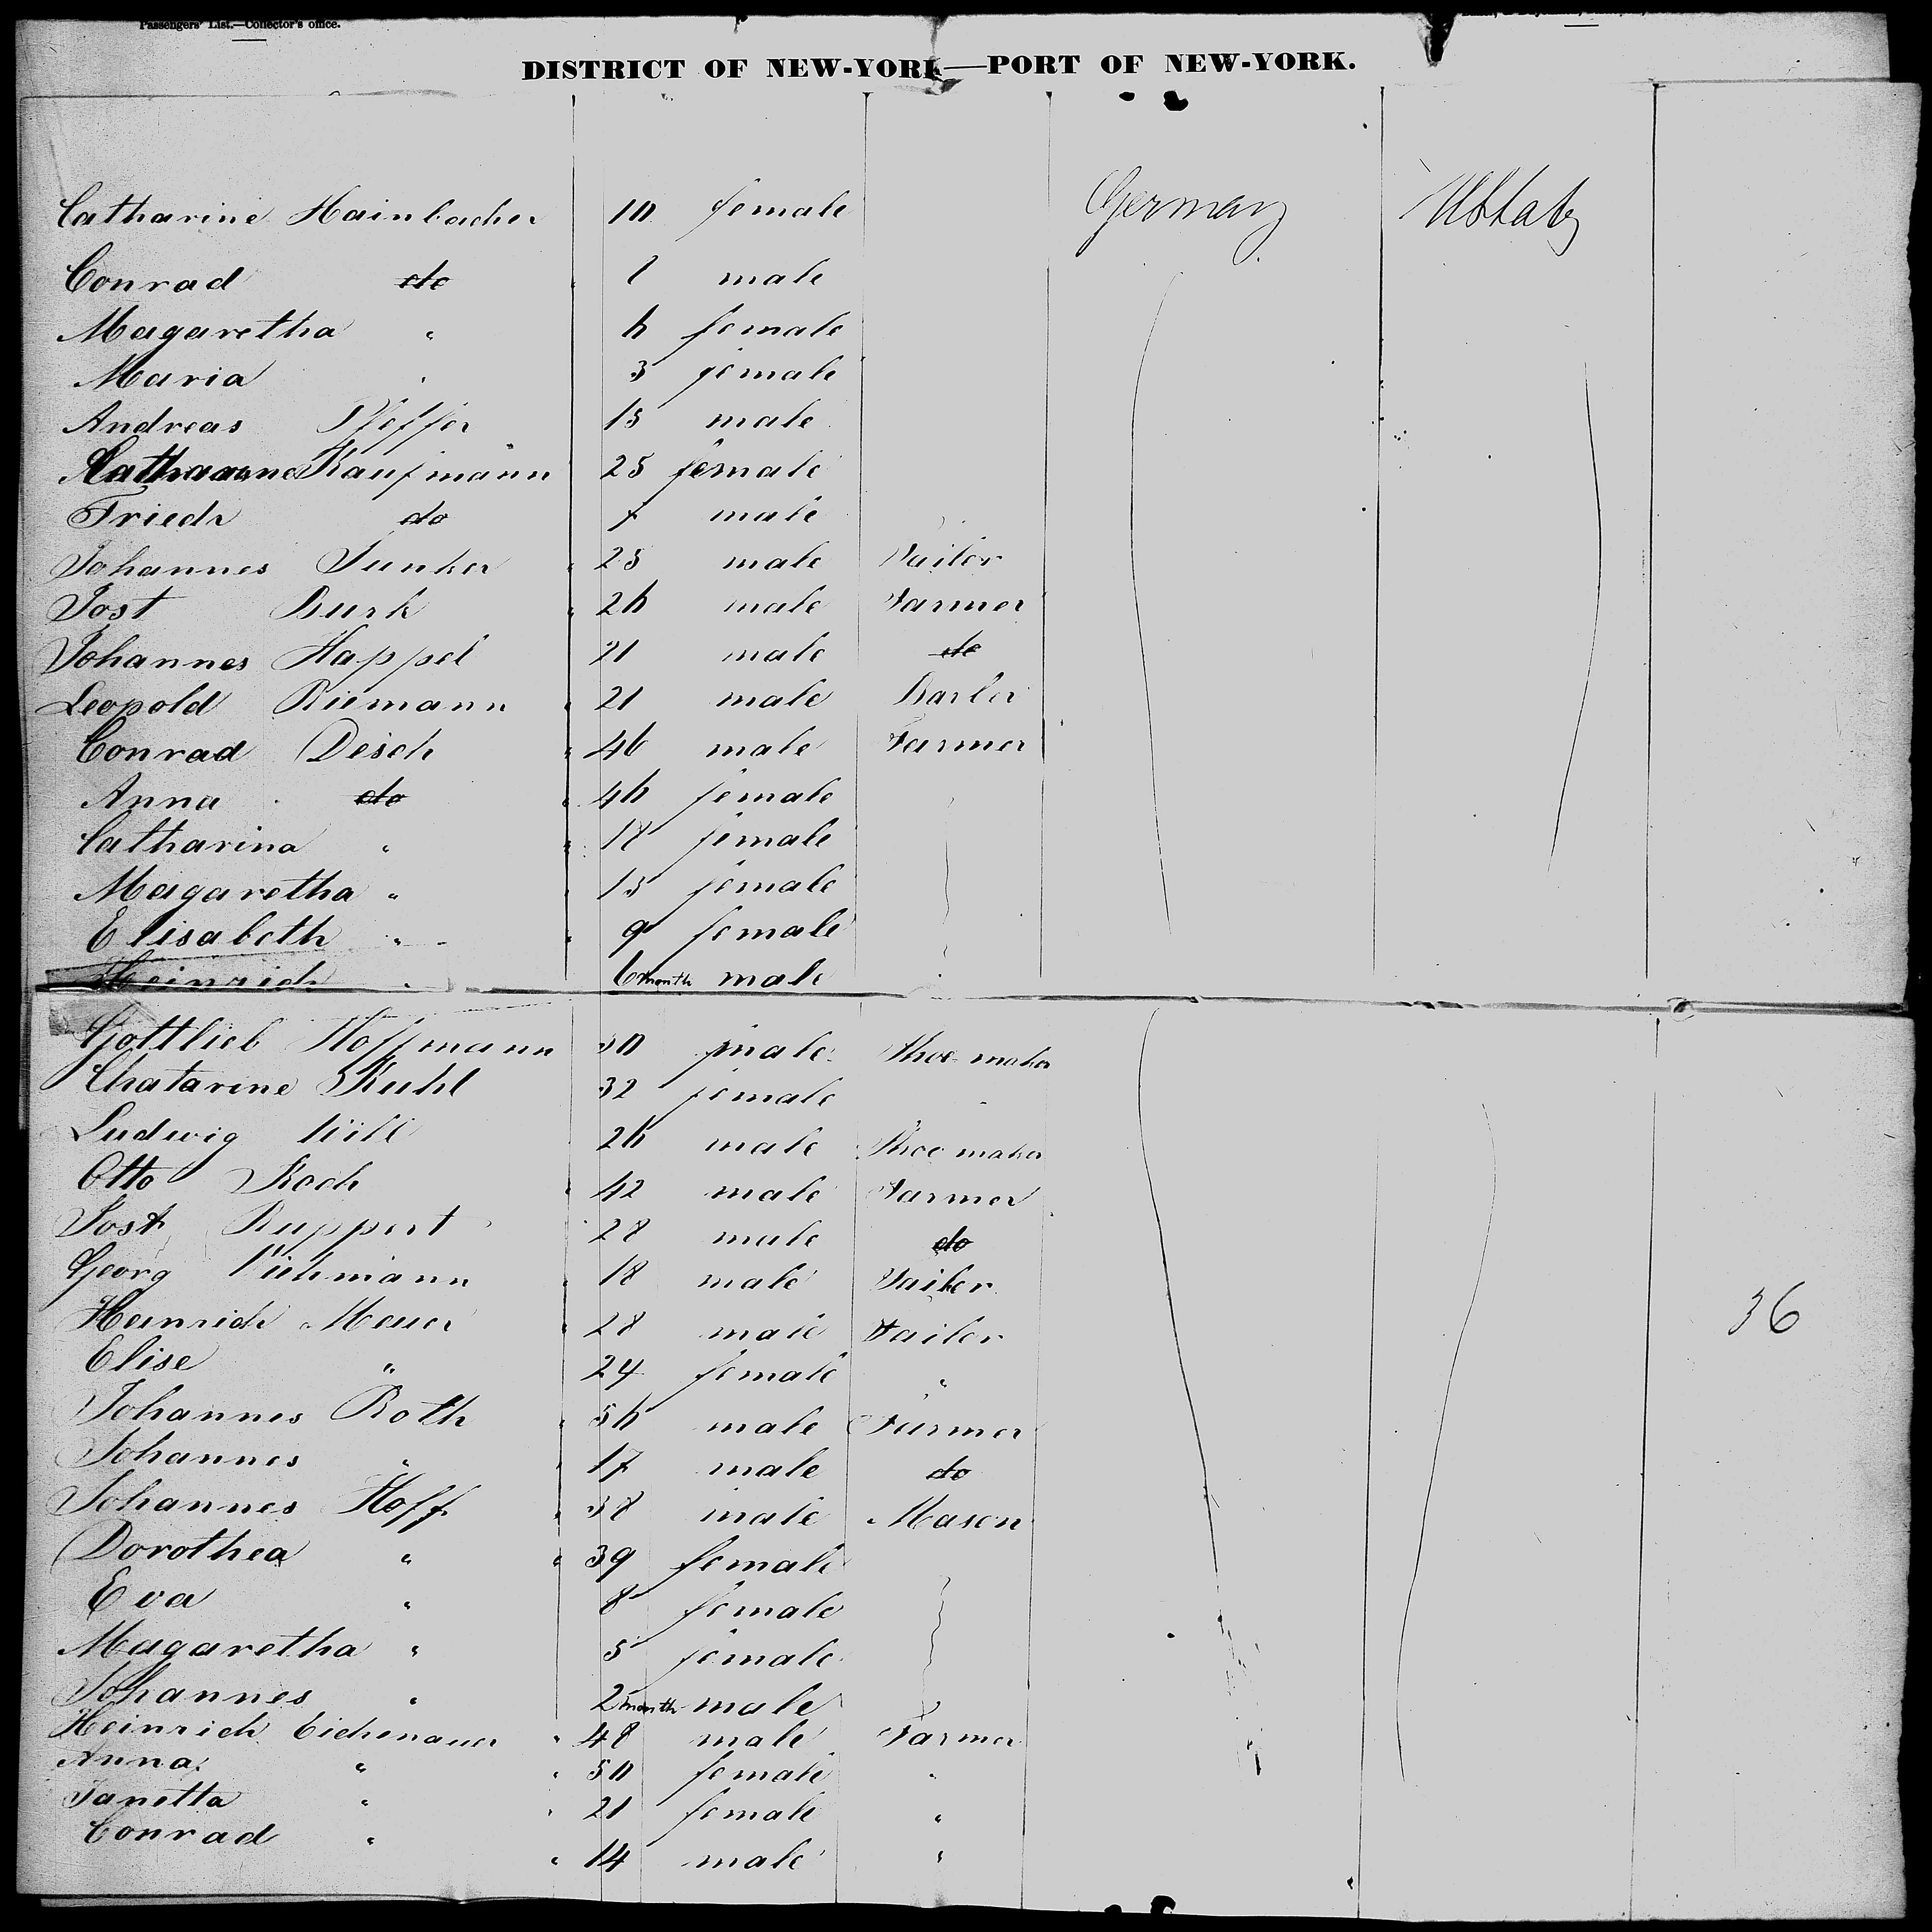 Passengers' List.—Collector's office.
DISTRICT OF NEW-YORK—PORT OF NEW-YORK.
Catharine Hainbacher 10 female Germany UStates
Conrad do male
Magaretha " female
Maria " 3 female
Andreas 15 male
Catharine Kaufmann 25 female
Friedr do male
Johannes Junker 25 male Tailor
Jost Burk 26 male Farmer
Johannes Happel 21 male do
Leopold Riemann 21 male
Conrad Desch 46 male Farmer
Anna do 46 female
Catharina " 18 female
Magaretha " 15 female
Elisabeth " 9 female
Heinrich " 6 month male
Gottlieb Hoffmann 30 male Shoe maker
Chatarine Kuhl 32 female
Ludwig 26 male Shoe maker
Otto Koch 42 male Farmer
Jost Ruppert 28 male do
Georg 18 male Tailor
Heinrich Mauer 28 male Tailor
Elise " 24 female "
Johannes Roth 56 male Farmer
Johannes " 17 male do
Johannes Hoff 38 male Mason
Dorothea " 39 female
Eva " 8 female
Magaretha " 5 female
Johannes " 2 month male
Heinrich Eichenauer 48 male Farmer
Anna " 50 female "
Janetta " 21 female "
Conrad " 14 male "
36